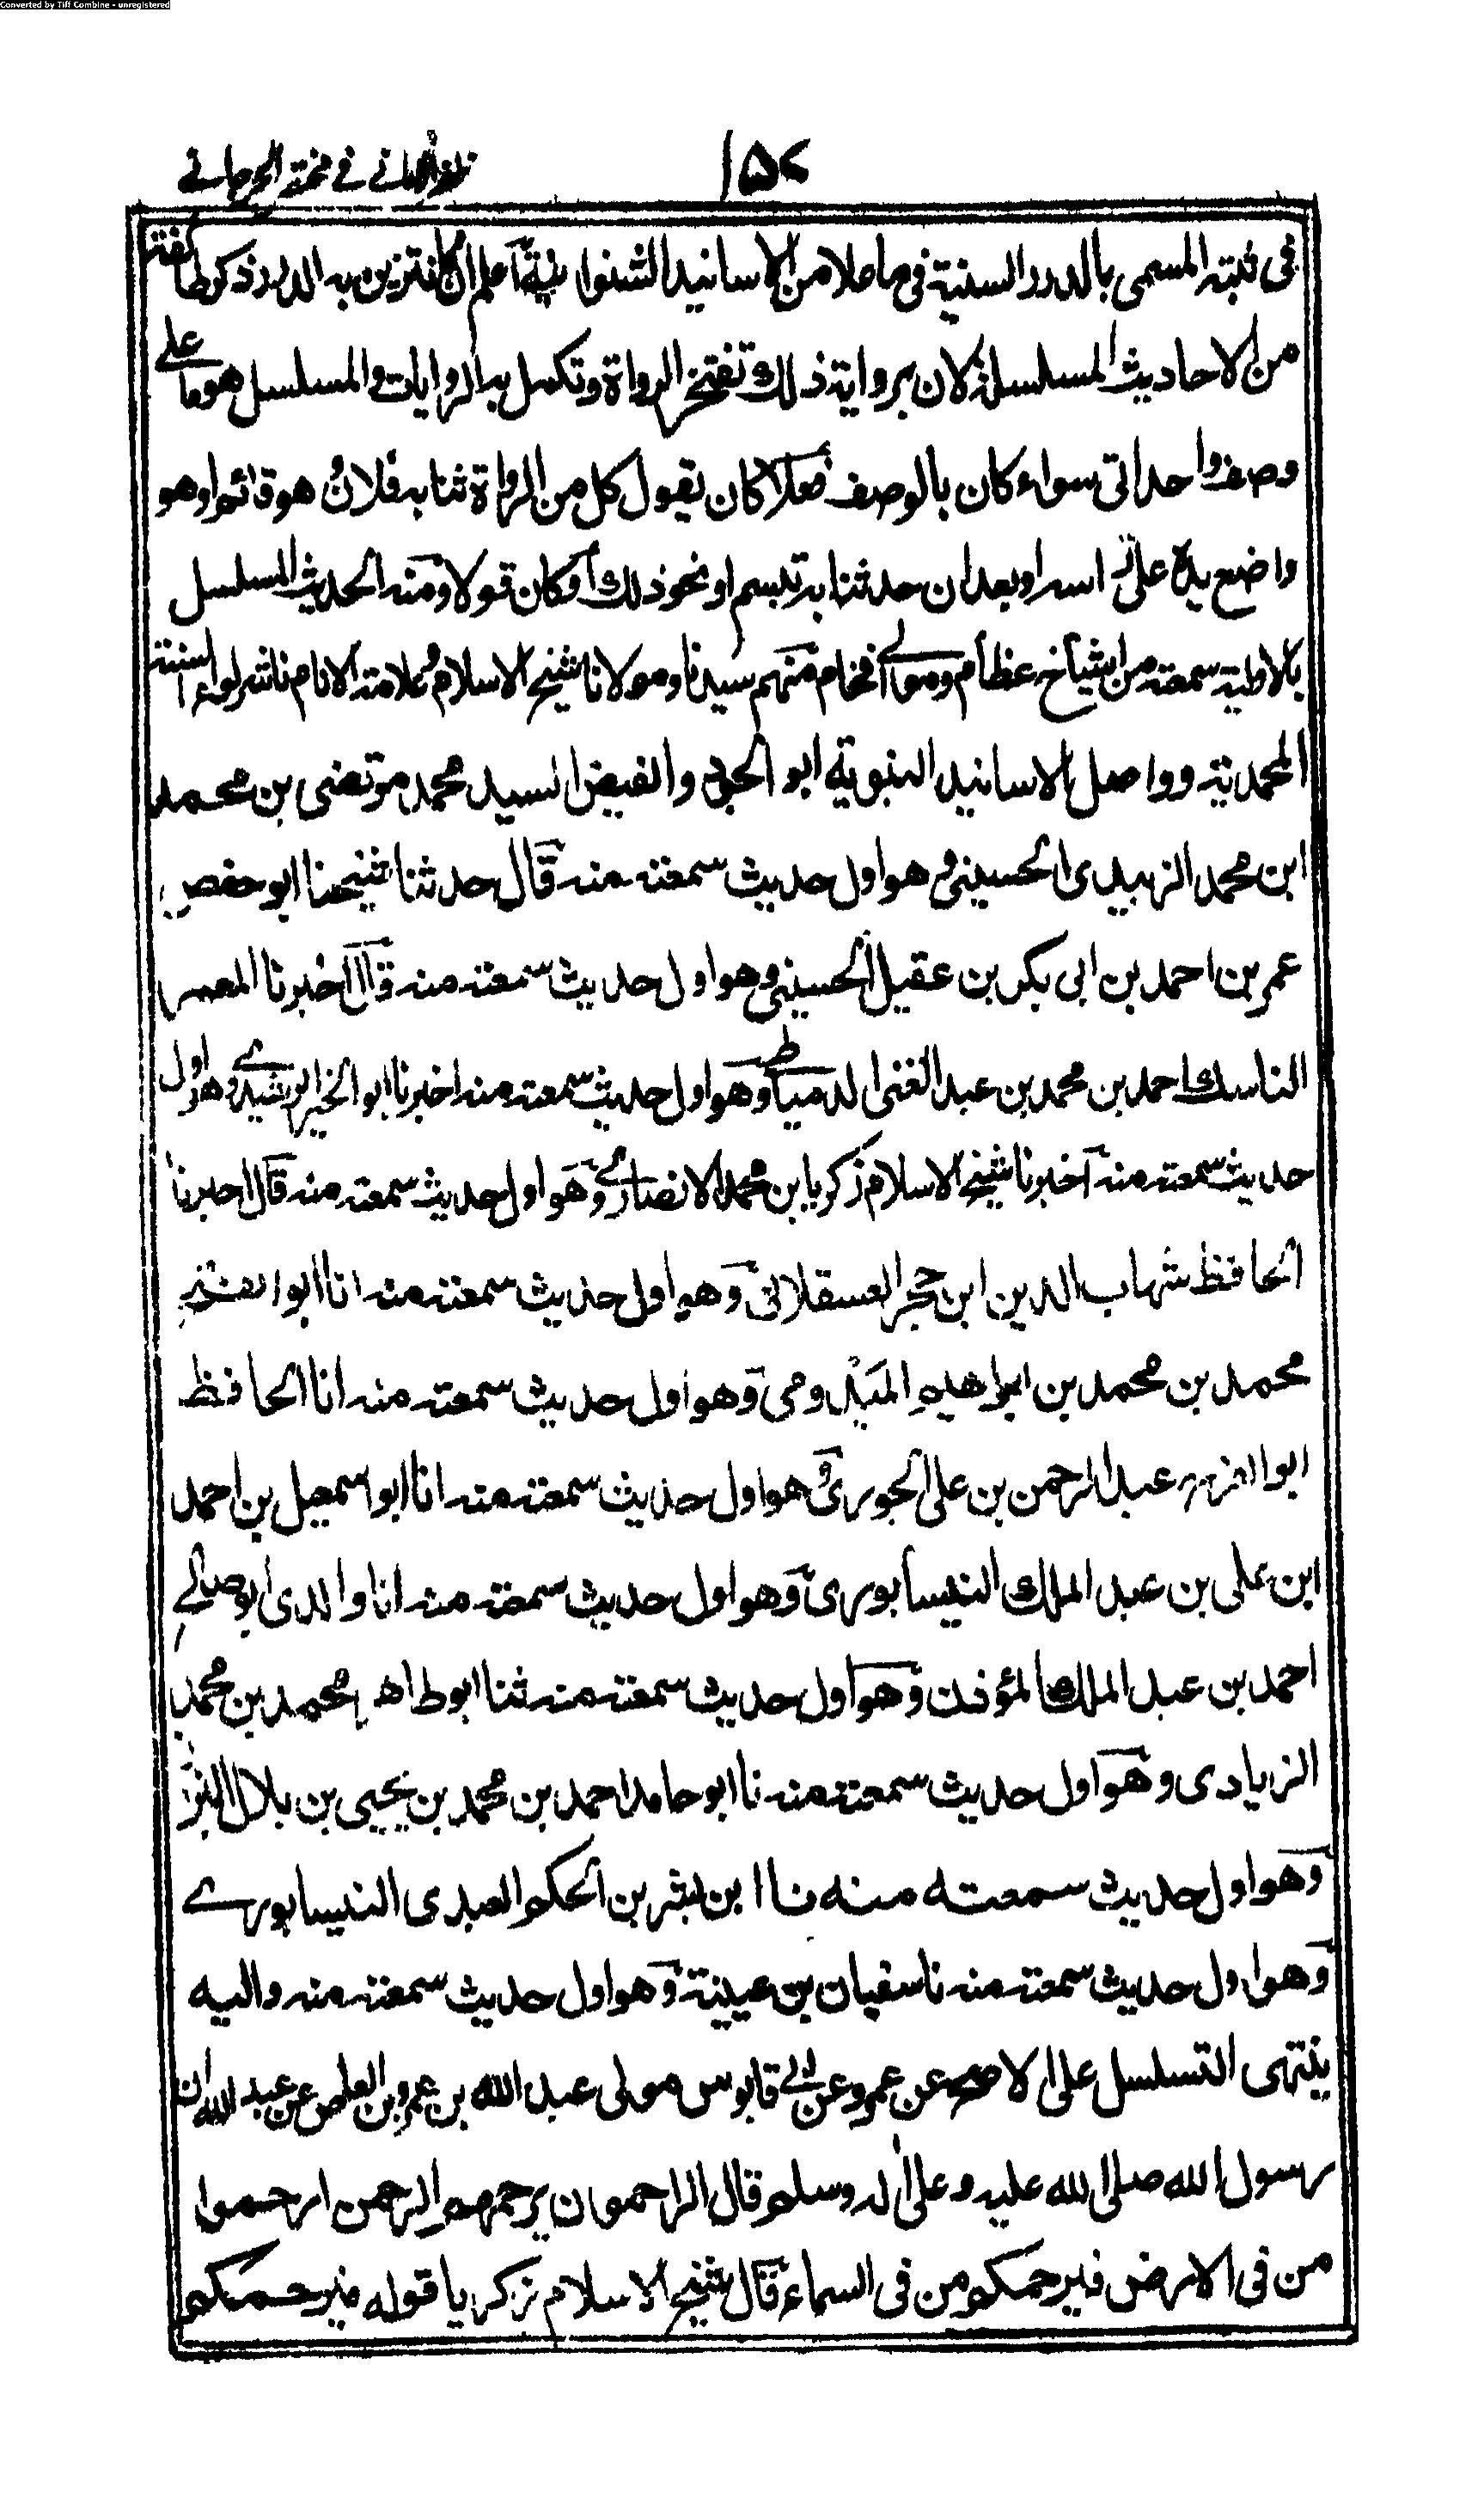 Converted by Tiff Combine - unregistered
ظفر الاماني في مختصر الجرجاني
١٥٧
في ثبته المسمى بالدرر السنية في ما علا من الاسانيد الشنوانية اعلم ان مما تتزين به الدرر ذكر طائفة
من الاحاديث المسلسلة لان برواية ذلك تفتخر الرواة وتكمل به الروايات والمسلسل هو ما على
وصف واحد اتى سواء كان بالوصف فعلا كان يقول كل من الرواة ثنا به فلان هو قائم او هو
واضع يده على راسه او بعد ان حدثنا به تبسم او نحو ذلك او كان قولا ومنه الحديث المسلسل
بالاولية سمعته من اشياخ عظام وموالي افخام منهم سيدنا ومولانا شيخ الاسلام وعلامة الانام ناشر لواء السنة
المحمدية وواصل الاسانيد النبوية ابو الجود والفيض السيد محمد مرتضى بن محمد
ابن محمد الزبيدى الحسيني وهو اول حديث سمعته منه قال حدثنا شيخنا ابو حفص
عمر بن احمد بن ابى بكر بن عقيل الحسيني وهو اول حديث سمعته منه قال اخبرنا المعمر
الناسك احمد بن محمد بن عبد الغنى الدمياطي وهو اول حديث سمعته منه اخبرنا ابو الخير الرشيدي وهو اول
حديث سمعته منه اخبرنا شيخ الاسلام زكريا بن محمد الانصاري وهو اول حديث سمعته منه قال اخبرنا
الحافظ شهاب الدين ابن حجر العسقلاني وهو اول حديث سمعته منه انا ابو الفتح
محمد بن محمد بن ابراهيم الميدومى وهو اول حديث سمعته منه انا الحافظ
ابو الفرج عبد الرحمن بن على الجوزى وهو اول حديث سمعته منه انا ابو اسمعيل بن احمد
ابن على بن عبد الملك النيسابورى وهو اول حديث سمعته منه انا والدى ابو صالح
احمد بن عبد الملك المؤذن وهو اول حديث سمعته منه ثنا ابو طاهر محمد بن محمد
الزيادى وهو اول حديث سمعته منه نا ابو حامد احمد بن محمد بن يحيى بن بلال البزاز
وهو اول حديث سمعته منه نا ابن بشر بن الحكم العبدى النيسابورے
وهو اول حديث سمعته منه نا سفيان بن عيينة وهو اول حديث سمعته منه واليه
ينتهى التسلسل على الاصح عن عمرو عن ابى قابوس مولى عبد الله بن عمرو بن العاص عن عبد الله ان
رسول الله صلى الله عليه وعلى اله وسلم قال الراحمون يرحمهم الرحمن ارحموا
من فى الارض فيرحمكم من فى السماء قال شيخ الاسلام زكريا قوله فيرحمكم